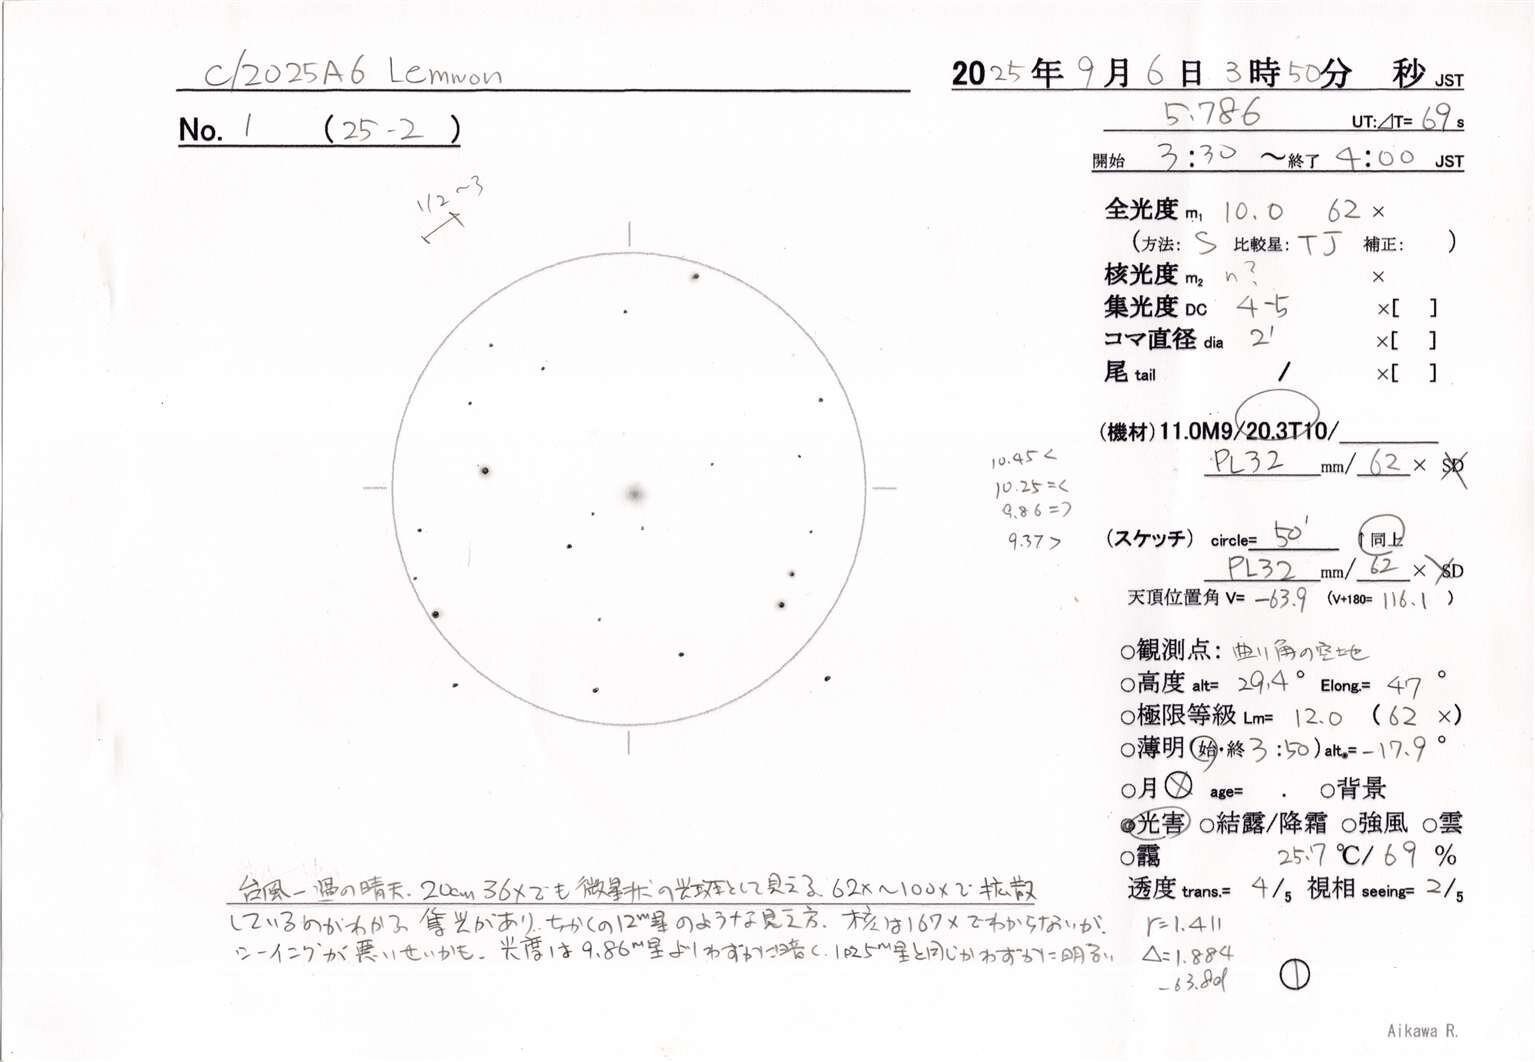 C/2025A6 Lemmon
No. 1 (25-2)
2025年9月6日3時50分 秒 JST
5.786 UT:⊿T= 69 s
開始 3:30 〜終了 4:00 JST
1/2~3
全光度 m₁ 10.0 62 ×
(方法: S 比較星: TJ 補正: )
核光度 m₂ n? ×
集光度 DC 4-5 ×[ ]
コマ直径 dia 2' ×[ ]
尾 tail / ×[ ]
(機材) 11.0M9/20.3T10/
PL32 mm/ 62 × SD
10.45<
10.25=<
9.86=>
9.37>
(スケッチ) circle= 50' ↑同上
PL32 mm/ 62 × SD
天頂位置角 V= -63.9 (V+180= 116.1 )
○観測点: 曲り角の空地
○高度 alt= 29.4° Elong.= 47°
○極限等級 Lm= 12.0 (62 ×)
○薄明(始・終 3:50) alt.= -17.9°
○月 age= . ○背景
●光害 ○結露/降霜 ○強風 ○雲
○靄 25.7 ℃/ 69 %
透度 trans.= 4/5 視相 seeing= 2/5
台風一過の晴天. 20cm 36×でも微星状の光斑として見える. 62×〜100×で拡散
しているのがわかる 集光があり、ちかくの12ᵐ星のような見え方. 核は167×でわからないが、
シーイングが悪いせいかも. 光度は9.86ᵐ星よりわずかに暗く、10.25ᵐ星と同じかわずかに明るい
r=1.411
Δ=1.884
-63.8d
①
Aikawa R.